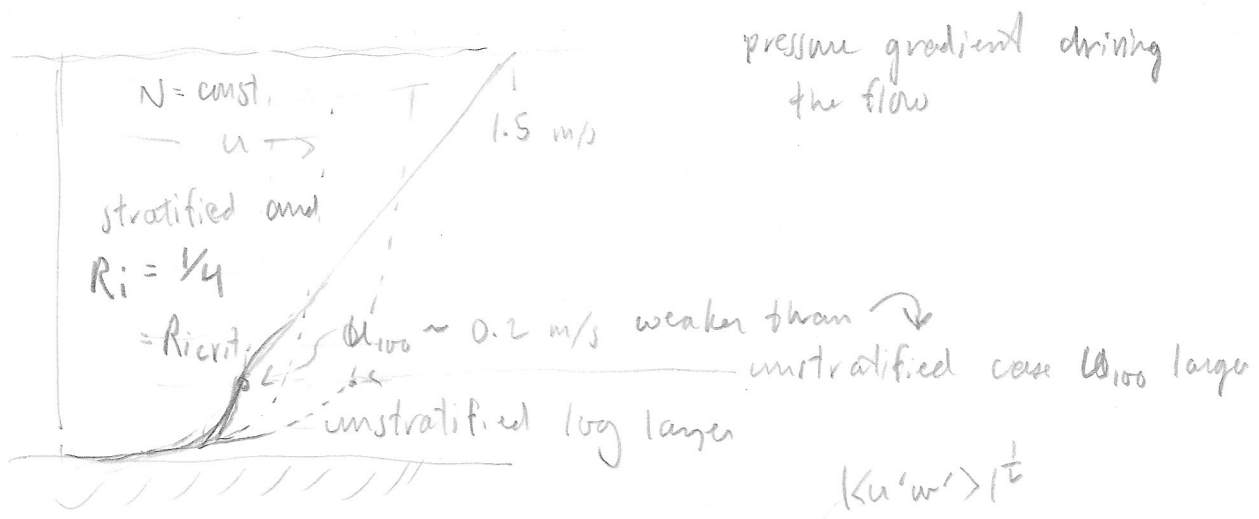 pressure gradient driving
the flow
N = const.
1.5 m/s
u →
stratified and
Ri = 1/4
= Ricrit.
U₁₀₀ ~ 0.2 m/s weaker than
unstratified case U₁₀₀ larger
unstratified log layer
|<u'w'>|^½